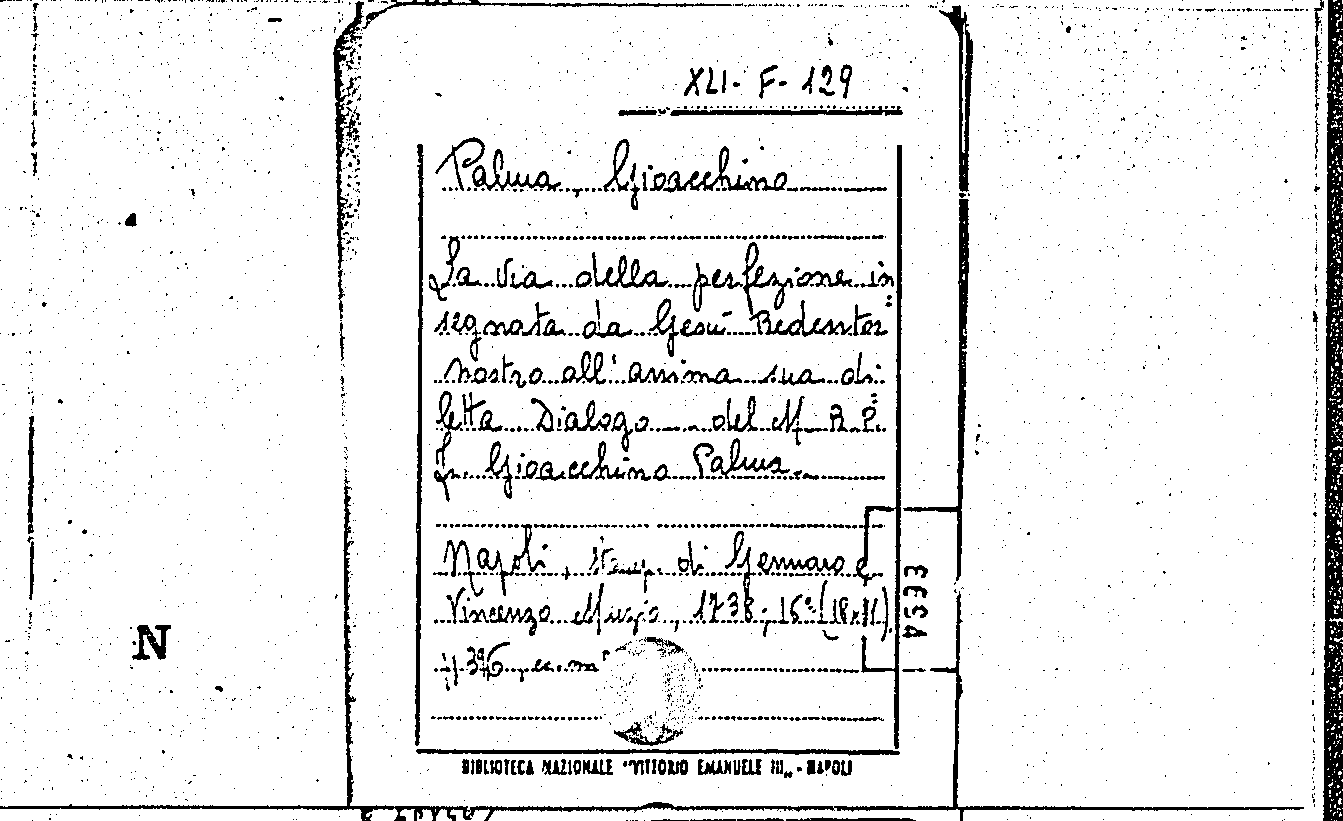 XLI- F- 129
Palma, Gioacchino
La via della perfezione in
segnata da Gesù Redentor
nostro all'anima sua di:
letta Dialogo - del M. R. P.
Fr. Gioacchino Palma.
Napoli, stamp. di Gennaro e
Vincenzo Muzio, 1738; 16° (18x11)
N
BIBLIOTECA NAZIONALE "VITTORIO EMANUELE III" - NAPOLI